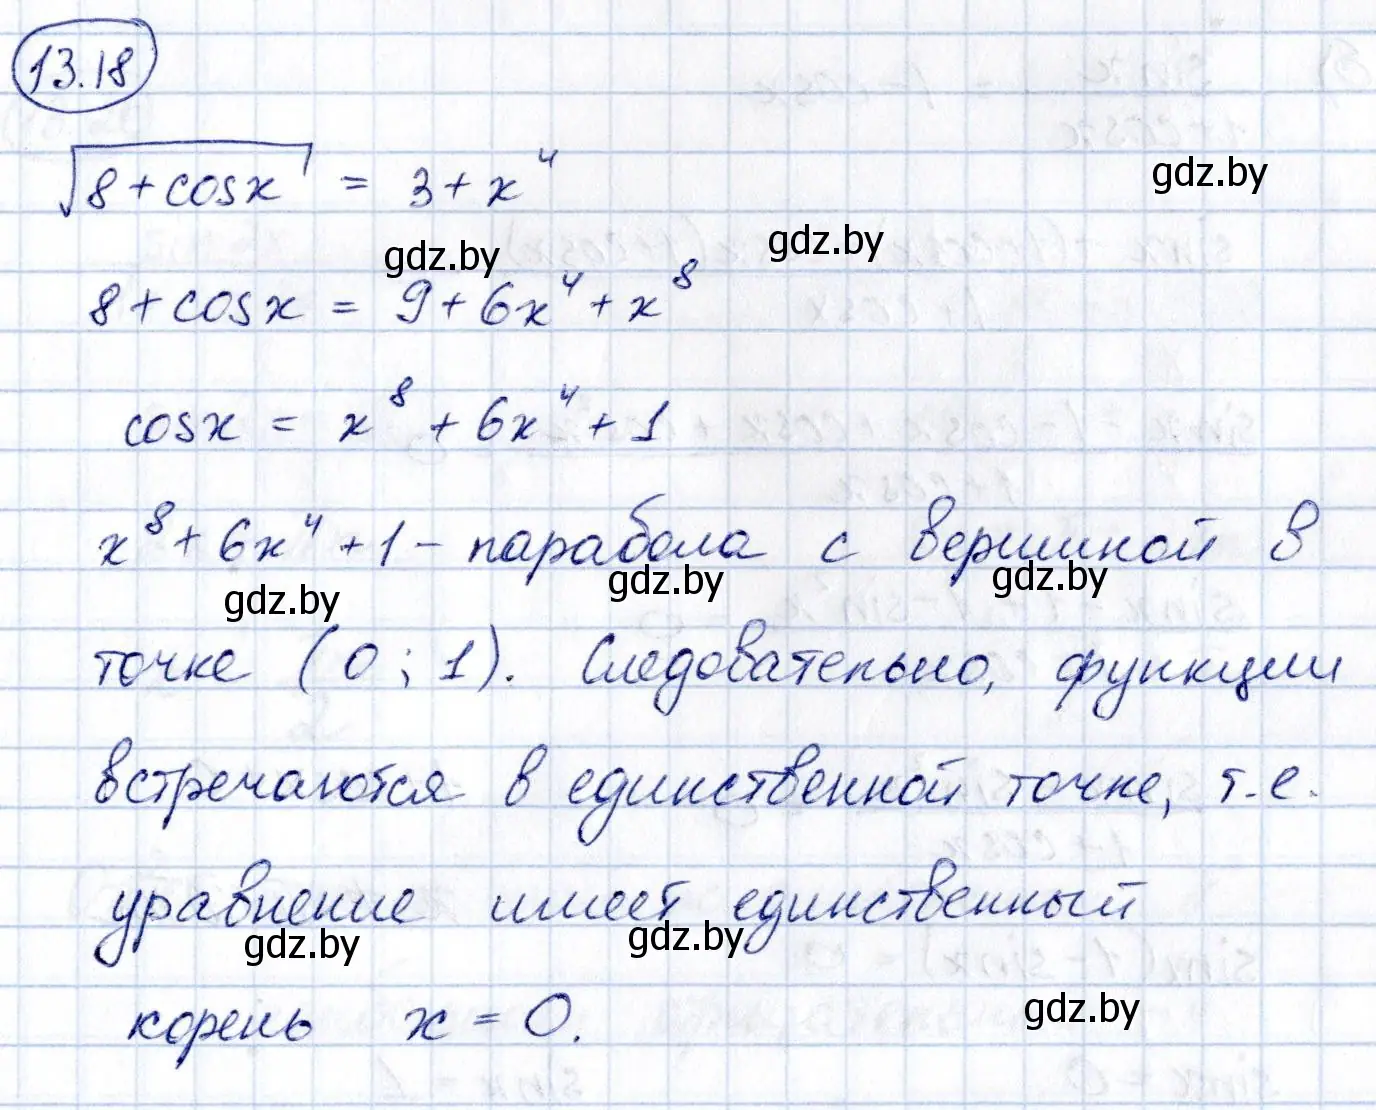 13.18
√(8 + cosx) = 3 + x⁴
8 + cosx = 9 + 6x⁴ + x⁸
cosx = x⁸ + 6x⁴ + 1
x⁸ + 6x⁴ + 1 - парабола с вершиной в
точке (0 ; 1). Следовательно, функции
встречаются в единственной точке, т.е.
уравнение имеет единственный
корень x = 0.
gdz.by
gdz.by
gdz.by
gdz.by
gdz.by
gdz.by
gdz.by
gdz.by
gdz.by